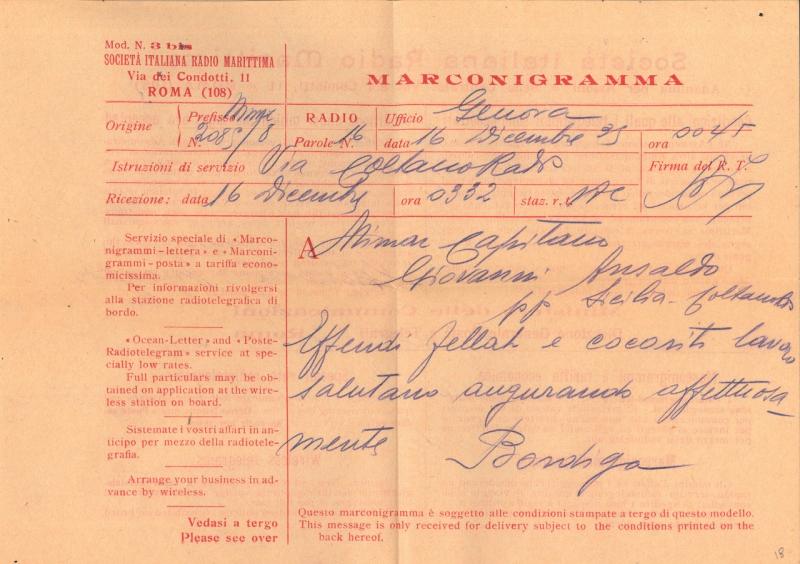 Mod. N. 3 bis
SOCIETÀ ITALIANA RADIO MARITTIMA
Via dei Condotti, 11
ROMA (108)
MARCONIGRAMMA
Origine
Prefisso
N. 2085/8
RADIO
Parole N. 16
Ufficio Genova
data 16 Dicembre 35
ora 0045
Istruzioni di servizio Via Coltano Rado
Firma del R. T.
Ricezione: data 16 Dicembre
ora 0332
staz. r.t.
Servizio speciale di «Marco-
nigrammi-lettera» e «Marconi-
grammi-posta» a tariffa econo-
micissima.
Per informazioni rivolgersi
alla stazione radiotelegrafica di
bordo.
«Ocean-Letter» and «Poste-
Radiotelegram» service at spe-
cially low rates.
Full particulars may be ob-
tained on application at the wire-
less station on board.
Sistemate i vostri affari in an-
ticipo per mezzo della radiotele-
grafia.
Arrange your business in ad-
vance by wireless.
Vedasi a tergo
Please see over
A Mimar Capitano
Giovanni Ansaldo
pp Sicilia - Coltanorado
Effendi fellah e cocosti lavoro
salutano augurando affettuosa
mente Bordiga
Questo marconigramma è soggetto alle condizioni stampate a tergo di questo modello.
This message is only received for delivery subject to the conditions printed on the
back hereof.
18